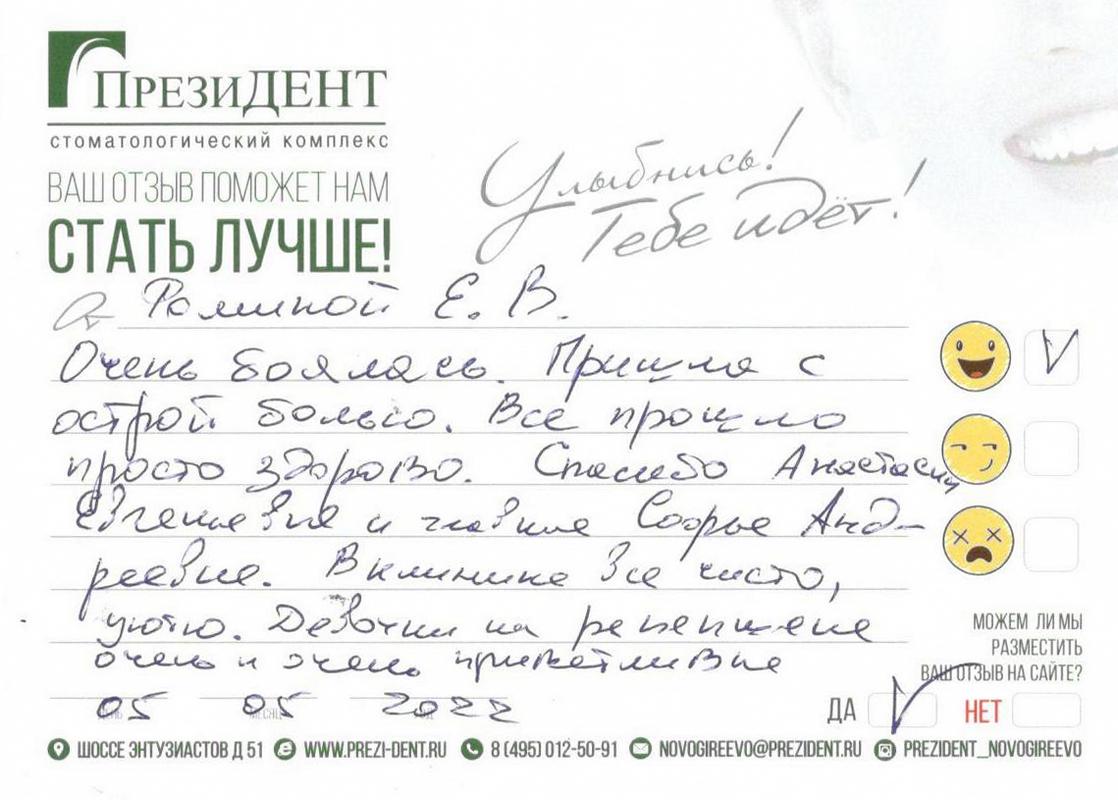 ПРЕЗИДЕНТ
стоматологический комплекс
ВАШ ОТЗЫВ ПОМОЖЕТ НАМ
СТАТЬ ЛУЧШЕ!
Улыбнись!
Тебе идёт!
От Роминой Е. В.
Очень боялась. Пришла с
острой болью. Все прошло
просто здорово. Спасибо Анастасии
Евгеньевне и главное Софье Анд-
реевне. В клинике все чисто,
уютно. Девочки на репепшене
очень и очень приветливые
05 05 2022
ДЕНЬ МЕСЯЦ
МОЖЕМ ЛИ МЫ
РАЗМЕСТИТЬ
ВАШ ОТЗЫВ НА САЙТЕ?
ДА НЕТ
ШОССЕ ЭНТУЗИАСТОВ Д 51 WWW.PREZI-DENT.RU 8 (495) 012-50-91 NOVOGIREEVO@PREZIDENT.RU PREZIDENT_NOVOGIREEVO